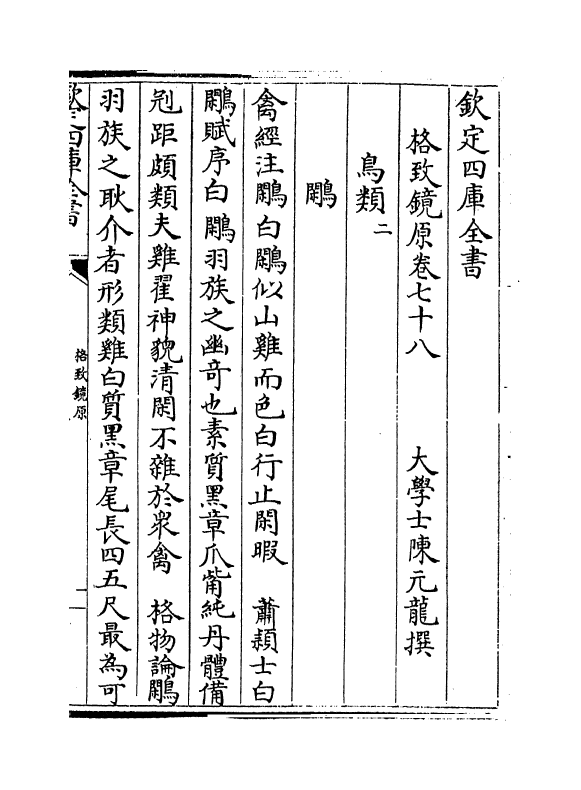 欽定四庫全書
格致鏡原卷七十八
大學士陳元龍撰
鳥類二
鷴
禽經注鷴白鷴似山雞而色白行止閑暇　蕭潁士白
鷴賦序白鷴羽族之幽奇也素質黑章爪觜純丹體備
剡距頗類夫雞翟神貌清閑不雜於衆禽　格物論鷴
羽族之耿介者形類雞白質黑章尾長四五尺最為可
欽定四庫全書
格致鏡原